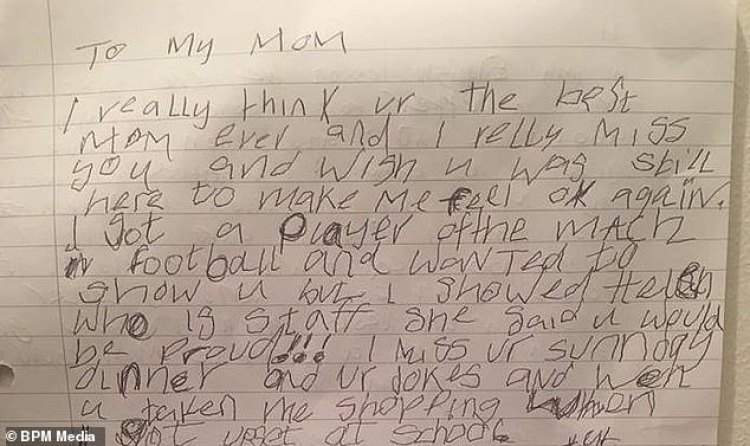 To My Mom
I really think ur the best
Mom ever and I relly Miss
you and wish u was still
here to make me feel ok again.
I got a player ofthe mach
in football and wanted to
show u but I showed Helen
who is staff she said u would
be proud!!! I Miss ur sunday
dinner and ur jokes and wen
u taken me shopping when
I got upset at school
BPM Media